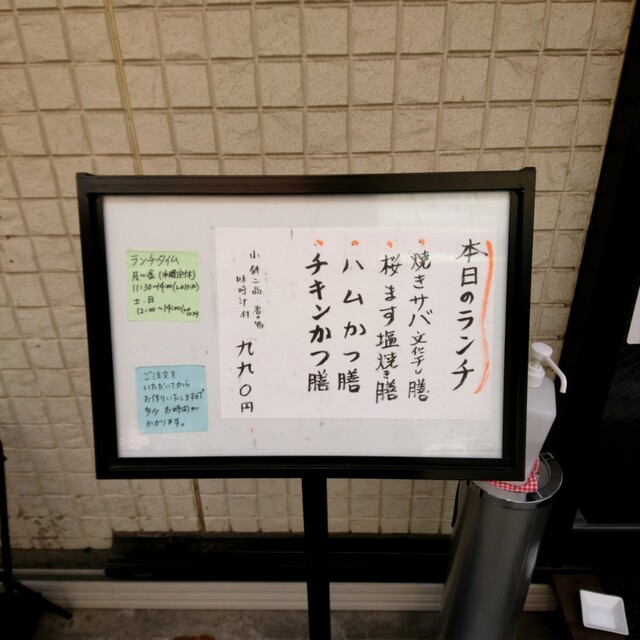 本日のランチ
・焼きサバ文化干し膳
・桜ます塩焼き膳
・ハムかつ膳
・チキンかつ膳
小鉢二品 香の物
味噌汁付
九九〇円
ランチタイム
月〜金(水曜定休)
11:30〜14:00
土・日
12:00〜14:00
ご注文を
いただいてから
お作りいたしますので
多少お時間が
かかります。